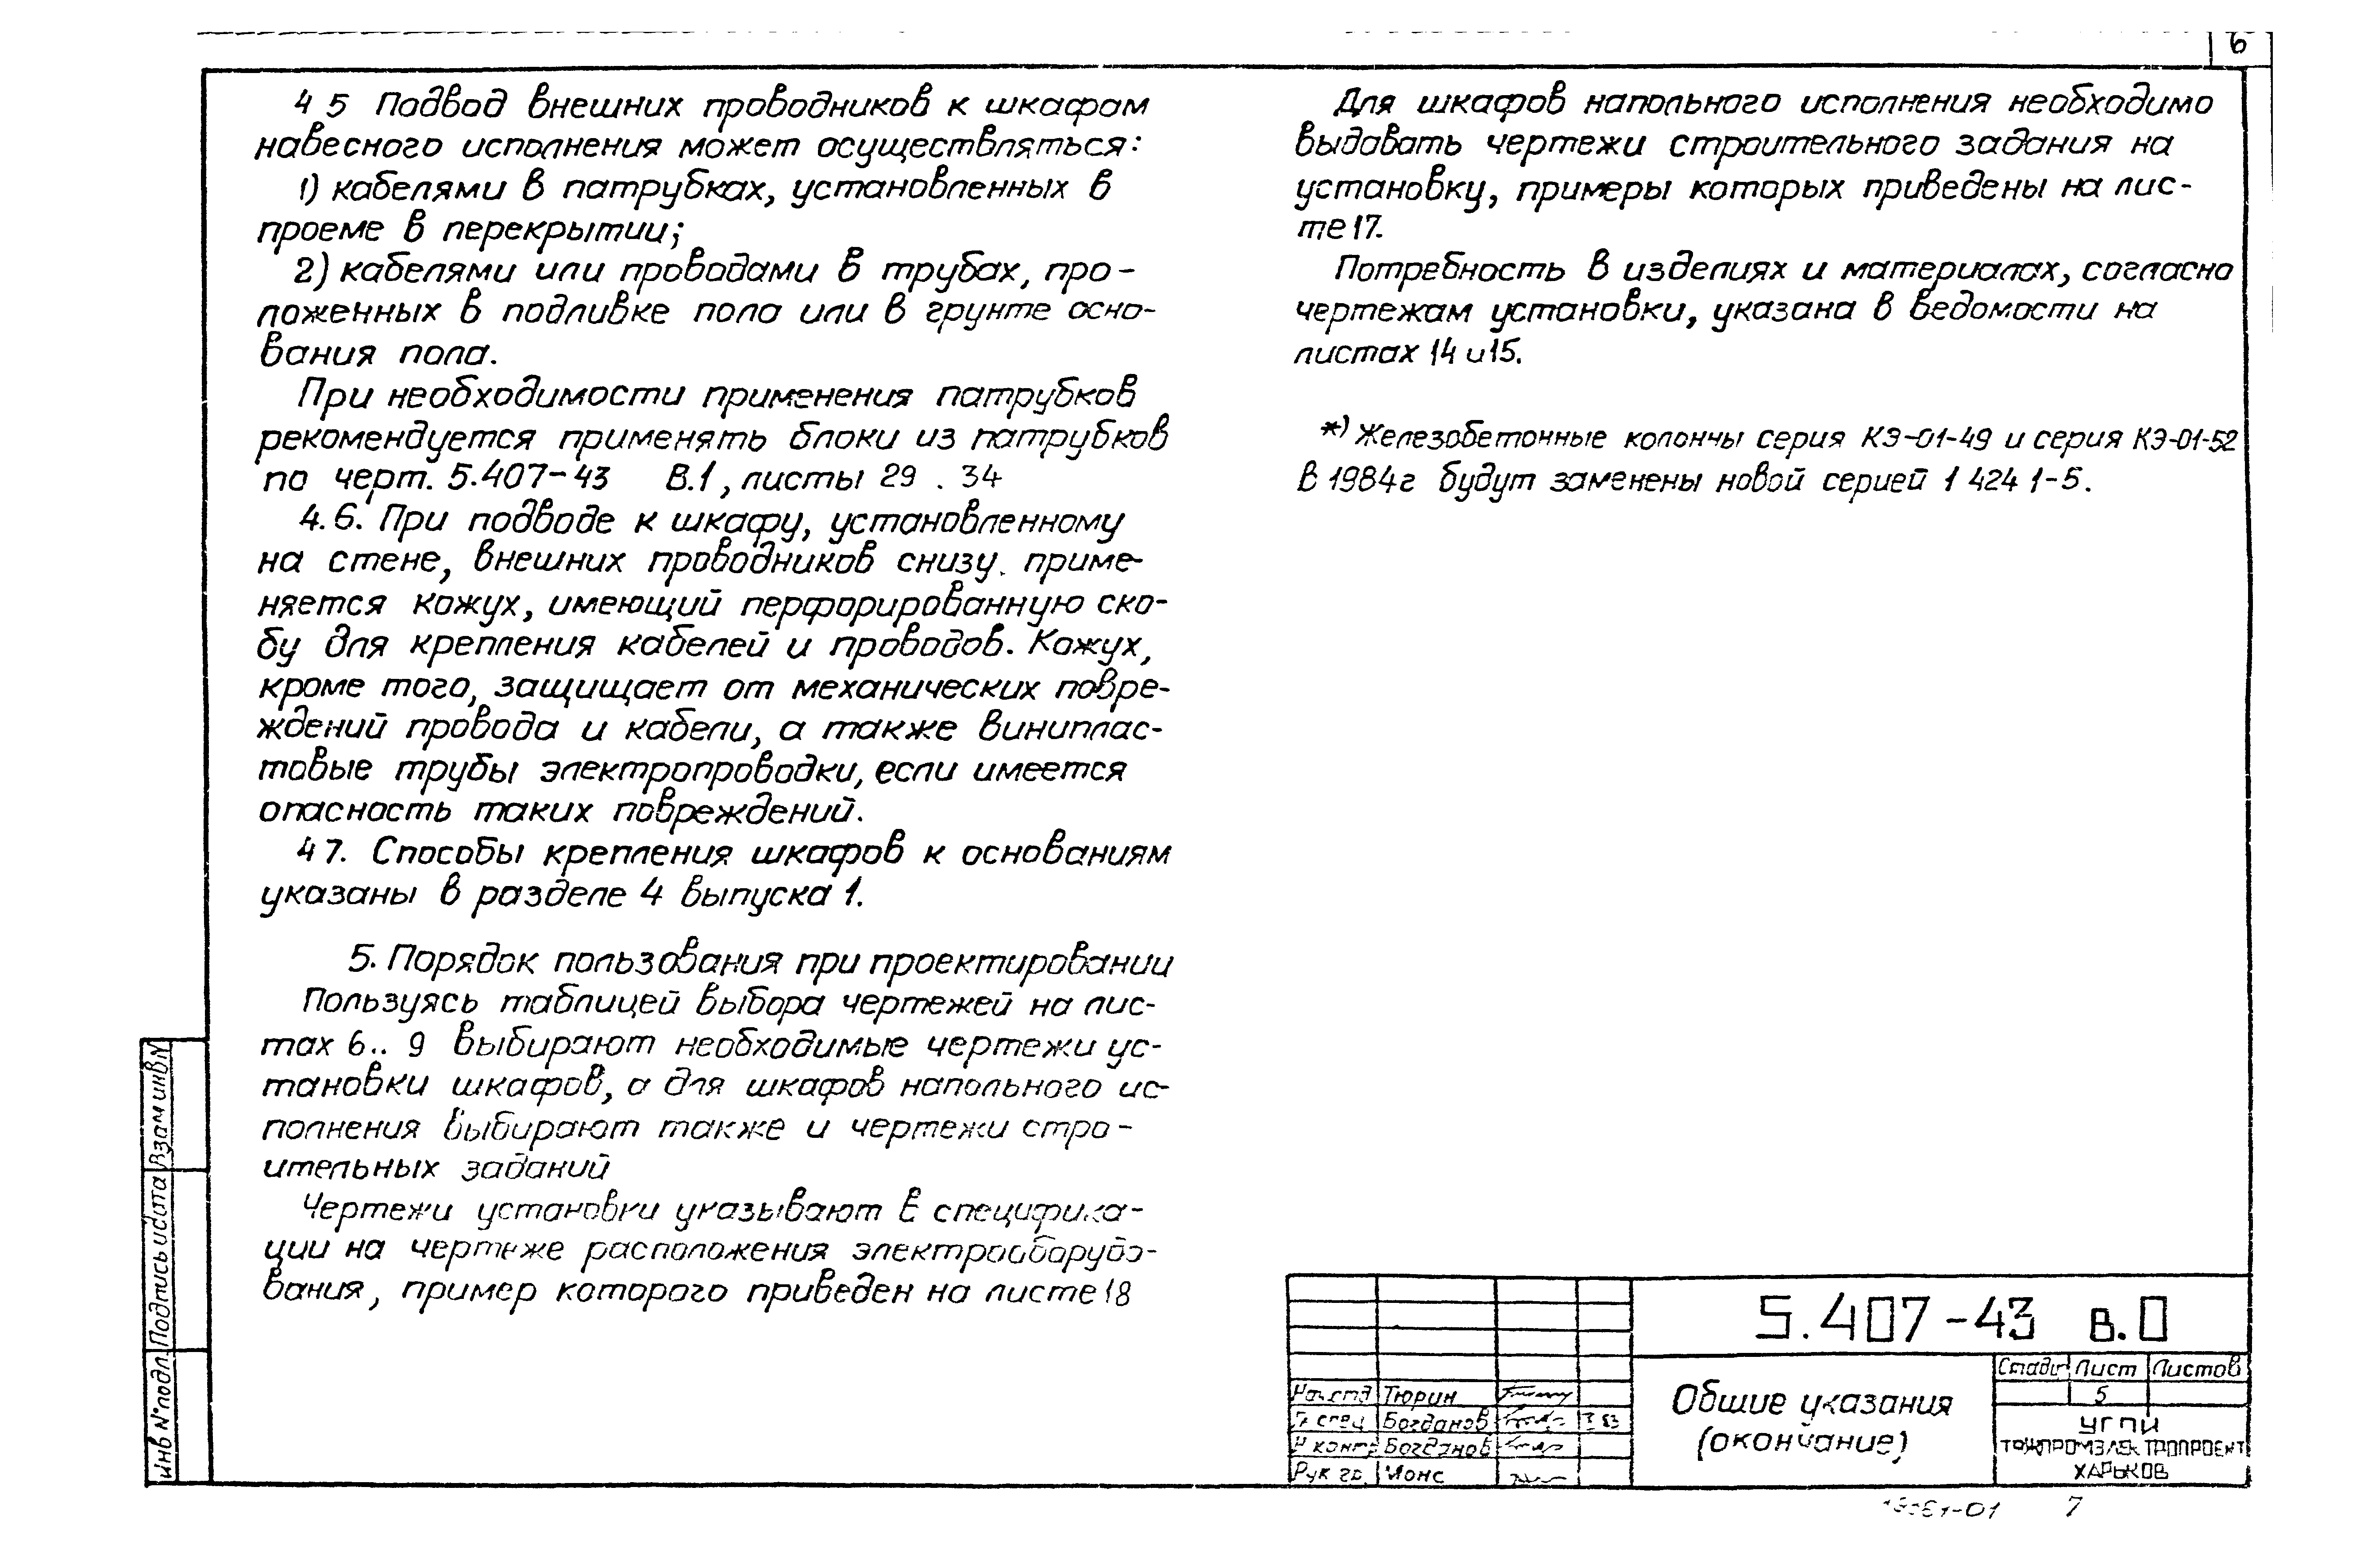 6
4 5 Подвод внешних проводников к шкафам
навесного исполнения может осуществляться:
1) кабелями в патрубках, установленных в
проеме в перекрытии;
2) кабелями или проводами в трубах, про-
ложенных в подливке пола или в грунте осно-
вания пола.
При необходимости применения патрубков
рекомендуется применять блоки из патрубков
по черт. 5.407-43 В.1, листы 29 . 34
4.6. При подводе к шкафу, установленному
на стене, внешних проводников снизу. приме-
няется кожух, имеющий перфорированную ско-
бу для крепления кабелей и проводов. Кожух,
кроме того, защищает от механических повре-
ждений провода и кабели, а также виниплас-
товые трубы электропроводки, если имеется
опасность таких повреждений.
4 7. Способы крепления шкафов к основаниям
указаны в разделе 4 выпуска 1.
5. Порядок пользования при проектировании
Пользуясь таблицей выбора чертежей на лис-
тах 6.. 9 выбирают необходимые чертежи ус-
тановки шкафов, а для шкафов напольного ис-
полнения выбирают также и чертежи стро-
ительных заданий
Чертежи установки указывают в специфика-
ции на чертеже расположения электрооборудо-
вания, пример которого приведен на листе 18
Для шкафов напольного исполнения необходимо
выдавать чертежи строительного задания на
установку, примеры которых приведены на лис-
те 17.
Потребность в изделиях и материалах, согласно
чертежам установки, указана в ведомости на
листах 14 и 15.
*) Железобетонные колонны серия КЭ-01-49 и серия КЭ-01-52
в 1984г будут заменены новой серией 1 424 1-5.
Взам инв N
Подпись и дата
Инв N° подл.
5.407-43 в.0
Общие указания
(окончание)
Стадия Лист Листов
5
УГПИ
ТЯЖПРОМЭЛЕКТРОПРОЕКТ
ХАРЬКОВ
Нач. отд Тюрин
Гл спец Богданов 83
Н контр Богданов
Рук гр. Монс
-01 7